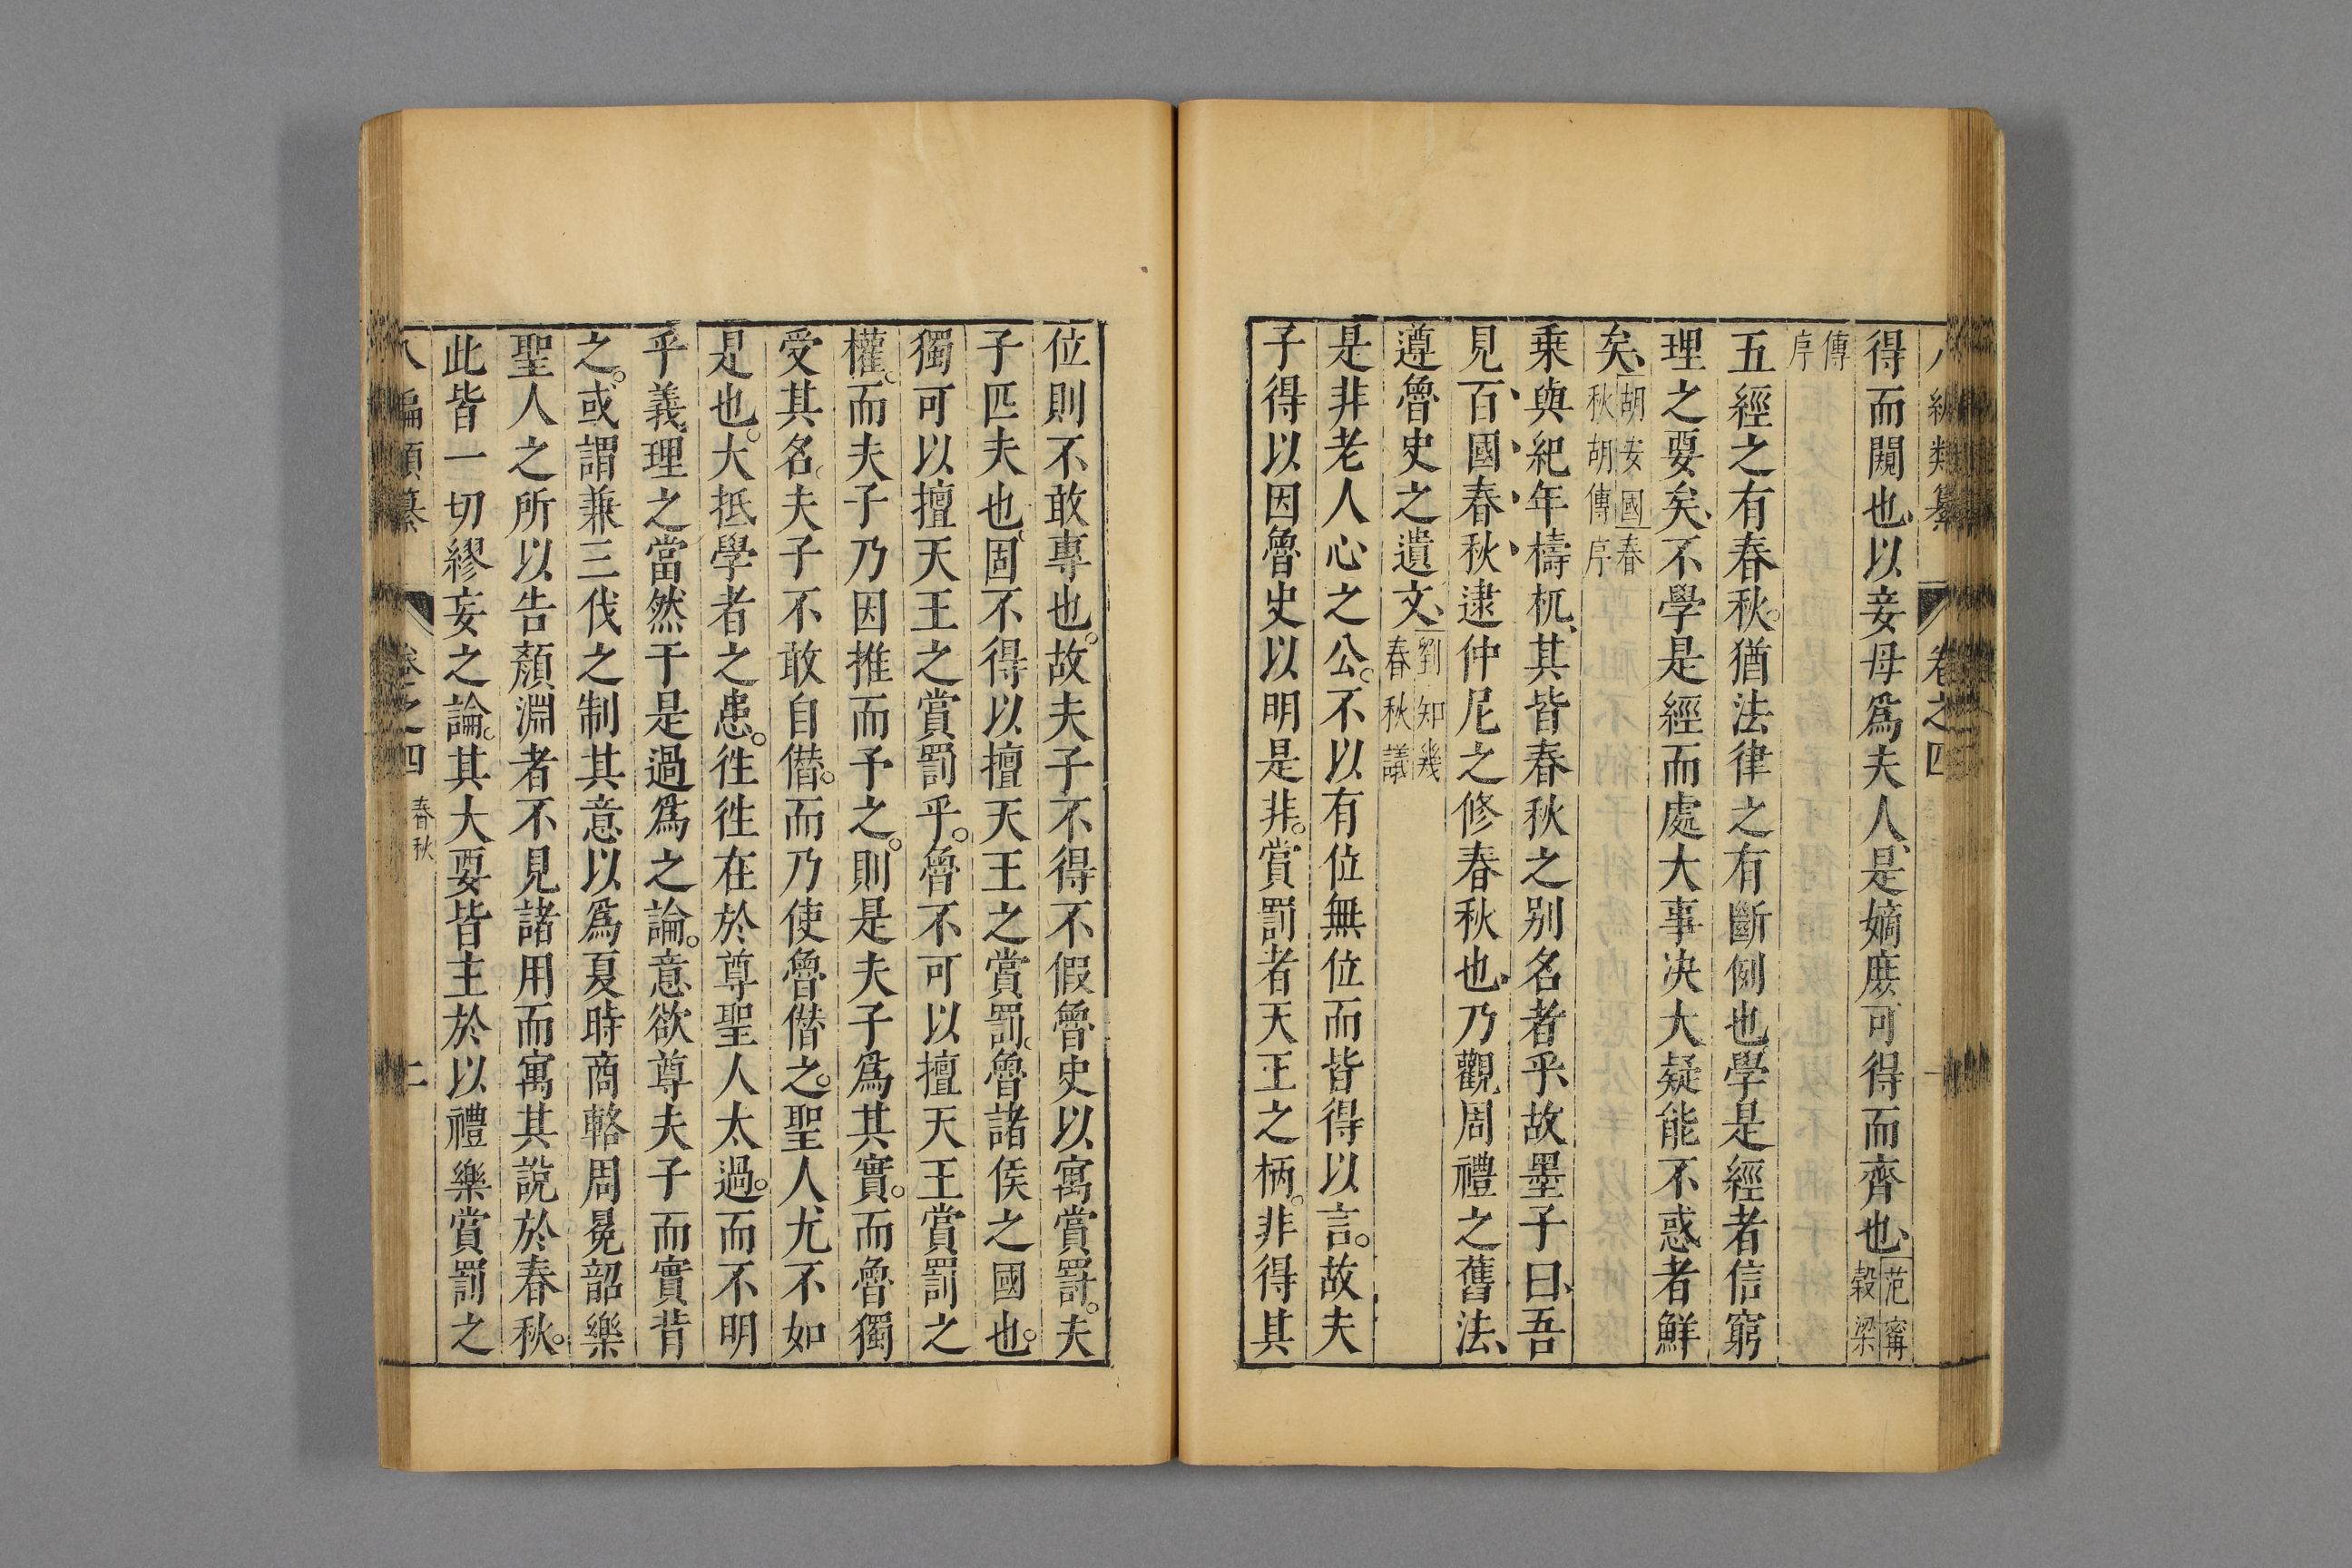 八編類纂 卷之四 一
得而闚也、以妾母爲夫人、是嫡庶可得而齊也、范甯穀梁
傳序
五經之有春秋。猶法律之有斷例也、學是經者信窮
理之要矣、不學是經而處大事决大疑能不惑者鮮
矣、胡安國春秋胡傳序
乗與紀年檮杌、其皆春秋之别名者乎、故墨子曰、吾
見百國春秋逮仲尼之修春秋也、乃觀周禮之舊法、
遵魯史之遺文、劉知幾春秋議
是非老人心之公。不以有位無位而皆得以言。故夫
子得以因魯史以明是非。賞罰者天王之柄。非得其
位則不敢專也。故夫子不得不假魯史以寓賞罸。夫
子匹夫也。固不得以擅天王之賞罰。魯諸侯之國也。
獨可以擅天王之賞罰乎。魯不可以擅天王賞罰之
權。而夫子乃因推而予之。則是夫子爲其實。而魯獨
受其名。夫子不敢自僣。而乃使魯僣之。聖人尤不如
是也。大抵學者之患。徃徃在於尊聖人太過。而不明
乎義理之當然于是過爲之論。意欲尊夫子而實背
之。或謂兼三代之制其意以爲夏時商輅周冕韶樂
聖人之所以告顏淵者不見諸用而寓其説於春秋。
此皆一切繆妄之論。其大要皆主於以禮樂賞罰之
八編類纂 卷之四 春秋 二